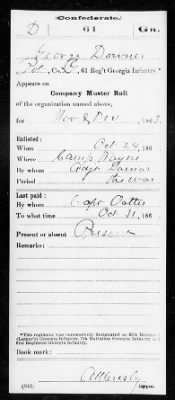 Confederate.
D 61 Ga.
George Downer
Pvt, Co. D, 61 Reg't Georgia Infantry.*
Appears on
Company Muster Roll
of the organization named above,
for Nov & Dec, 186
Enlisted:
When Oct 24, 186
Where Camp
By whom Capt Lamar
Period the war
Last paid:
By whom Capt
To what time Oct 31, 186
Present or absent Present
Remarks:
*This regiment was successively designated as
Georgia Infantry, 7th Battalion Georgia Infantry and
61st Regiment Georgia Infantry.
Book mark:
(642) Copyist.